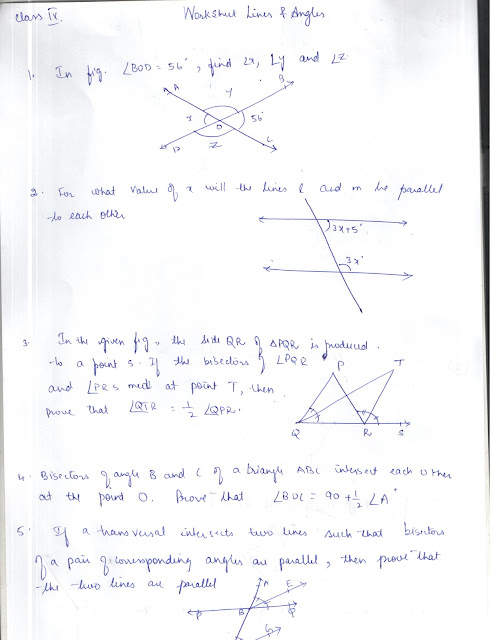 class IX.
Worksheet Lines & Angles
1. In fig. ∠BOD = 56°, find ∠x, ∠y and ∠Z
A
y
B
x
O
56°
D
Z
C
2. For what value of x will the lines l and m be parallel
to each other
3x+5°
3x°
3. In the given fig, the side QR of △PQR is produced.
to a point S. If the bisectors of ∠PQR
and ∠PRS meet at point T, then
prove that ∠QTR = 1/2 ∠QPR.
P
T
Q
R
S
4. Bisectors of angle B and C of a triangle ABC intersect each other
at the point O. Prove that ∠BOC = 90 + 1/2 ∠A°
5. If a transversal intersects two lines such that bisectors
of a pair of corresponding angles are parallel, then prove that
the two lines are parallel
A
E
P
B
Q
G